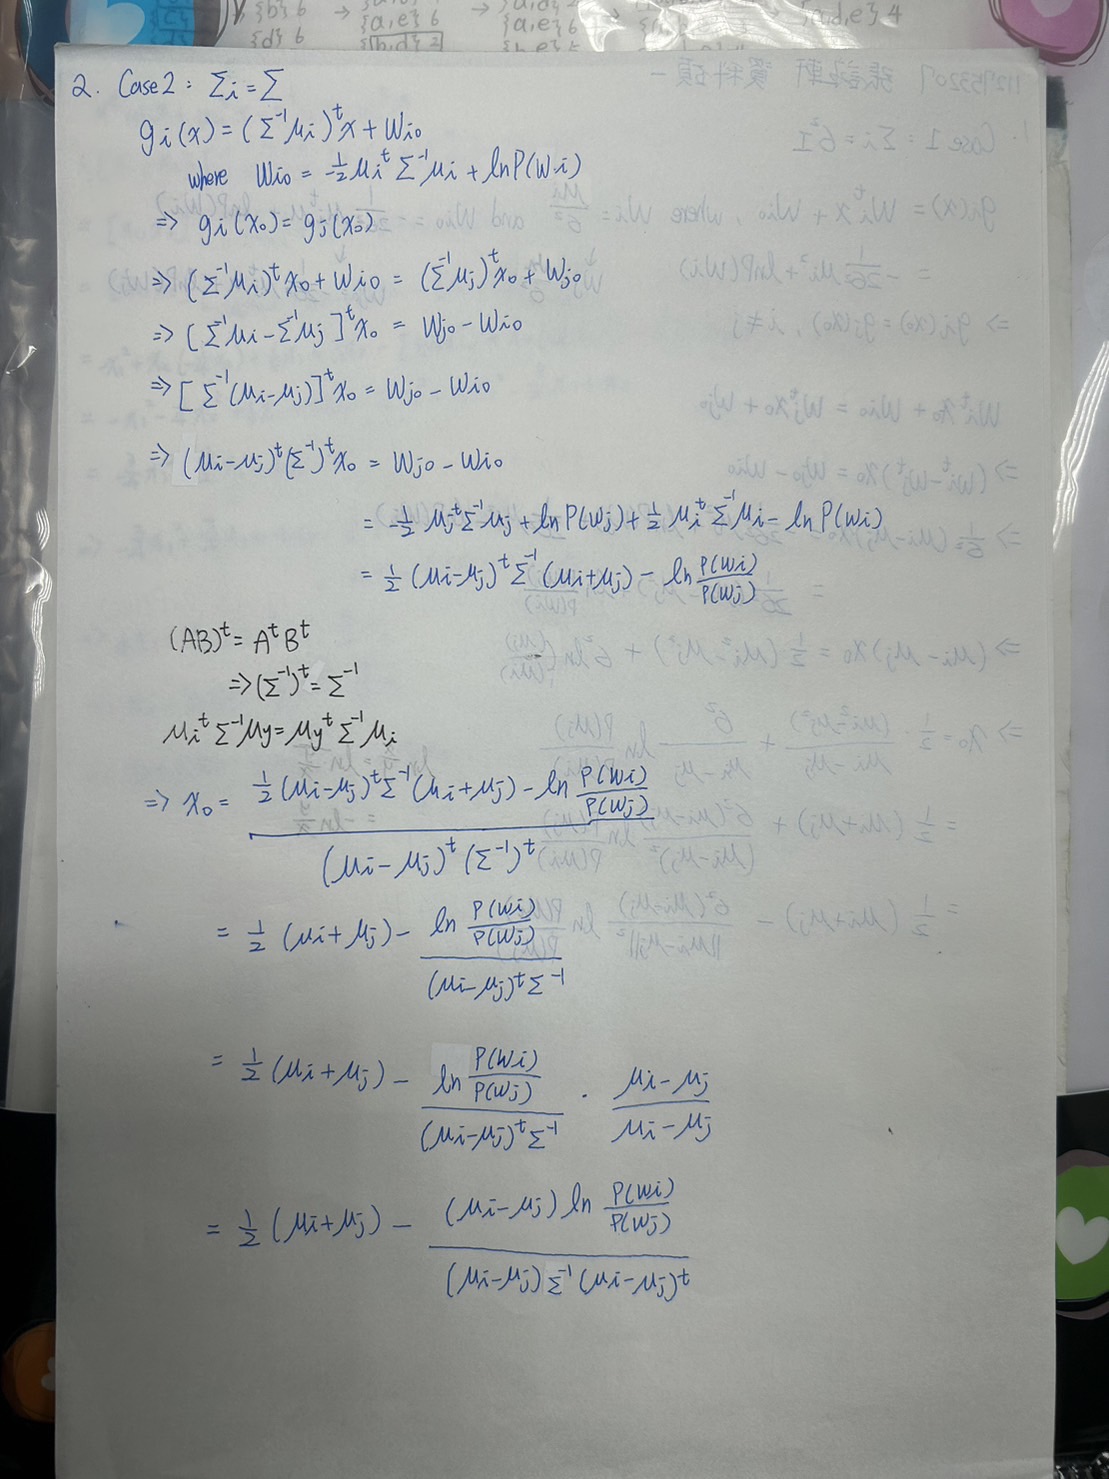 {b} 6 → {a,e} 6 → {a,e} 6 {a,d,e} 4
{d} 6 {b,d} 2 {b,e} 5
2. Case 2 : Σi = Σ
gi(x) = (Σ⁻¹μi)ᵗx + Wio
where Wio = -½ μiᵗ Σ⁻¹μi + lnP(Wi)
⇒ gi(x₀) = gj(x₀)
⇒ (Σ⁻¹μi)ᵗx₀ + Wio = (Σ⁻¹μj)ᵗx₀ + Wjo
⇒ [Σ⁻¹μi - Σ⁻¹μj]ᵗx₀ = Wjo - Wio
⇒ [Σ⁻¹(μi-μj)]ᵗx₀ = Wjo - Wio
⇒ (μi-μj)ᵗ(Σ⁻¹)ᵗx₀ = Wjo - Wio
= -½ μjᵗΣ⁻¹μj + lnP(Wj) + ½ μiᵗΣ⁻¹μi - lnP(Wi)
= ½ (μi-μj)ᵗΣ⁻¹(μi+μj) - ln P(Wi)/P(Wj)
(AB)ᵗ = AᵗBᵗ
⇒ (Σ⁻¹)ᵗ = Σ⁻¹
μiᵗΣ⁻¹μy = μyᵗΣ⁻¹μi
⇒ x₀ = ½(μi-μj)ᵗΣ⁻¹(μi+μj) - ln P(Wi)/P(Wj)
(μi-μj)ᵗ(Σ⁻¹)ᵗ
= ½ (μi+μj) - ln P(Wi)/P(Wj)
(μi-μj)ᵗΣ⁻¹
= ½ (μi+μj) - ln P(Wi)/P(Wj) · μi-μj
(μi-μj)ᵗΣ⁻¹ μi-μj
= ½ (μi+μj) - (μi-μj) ln P(Wi)/P(Wj)
(μi-μj)Σ⁻¹(μi-μj)ᵗ